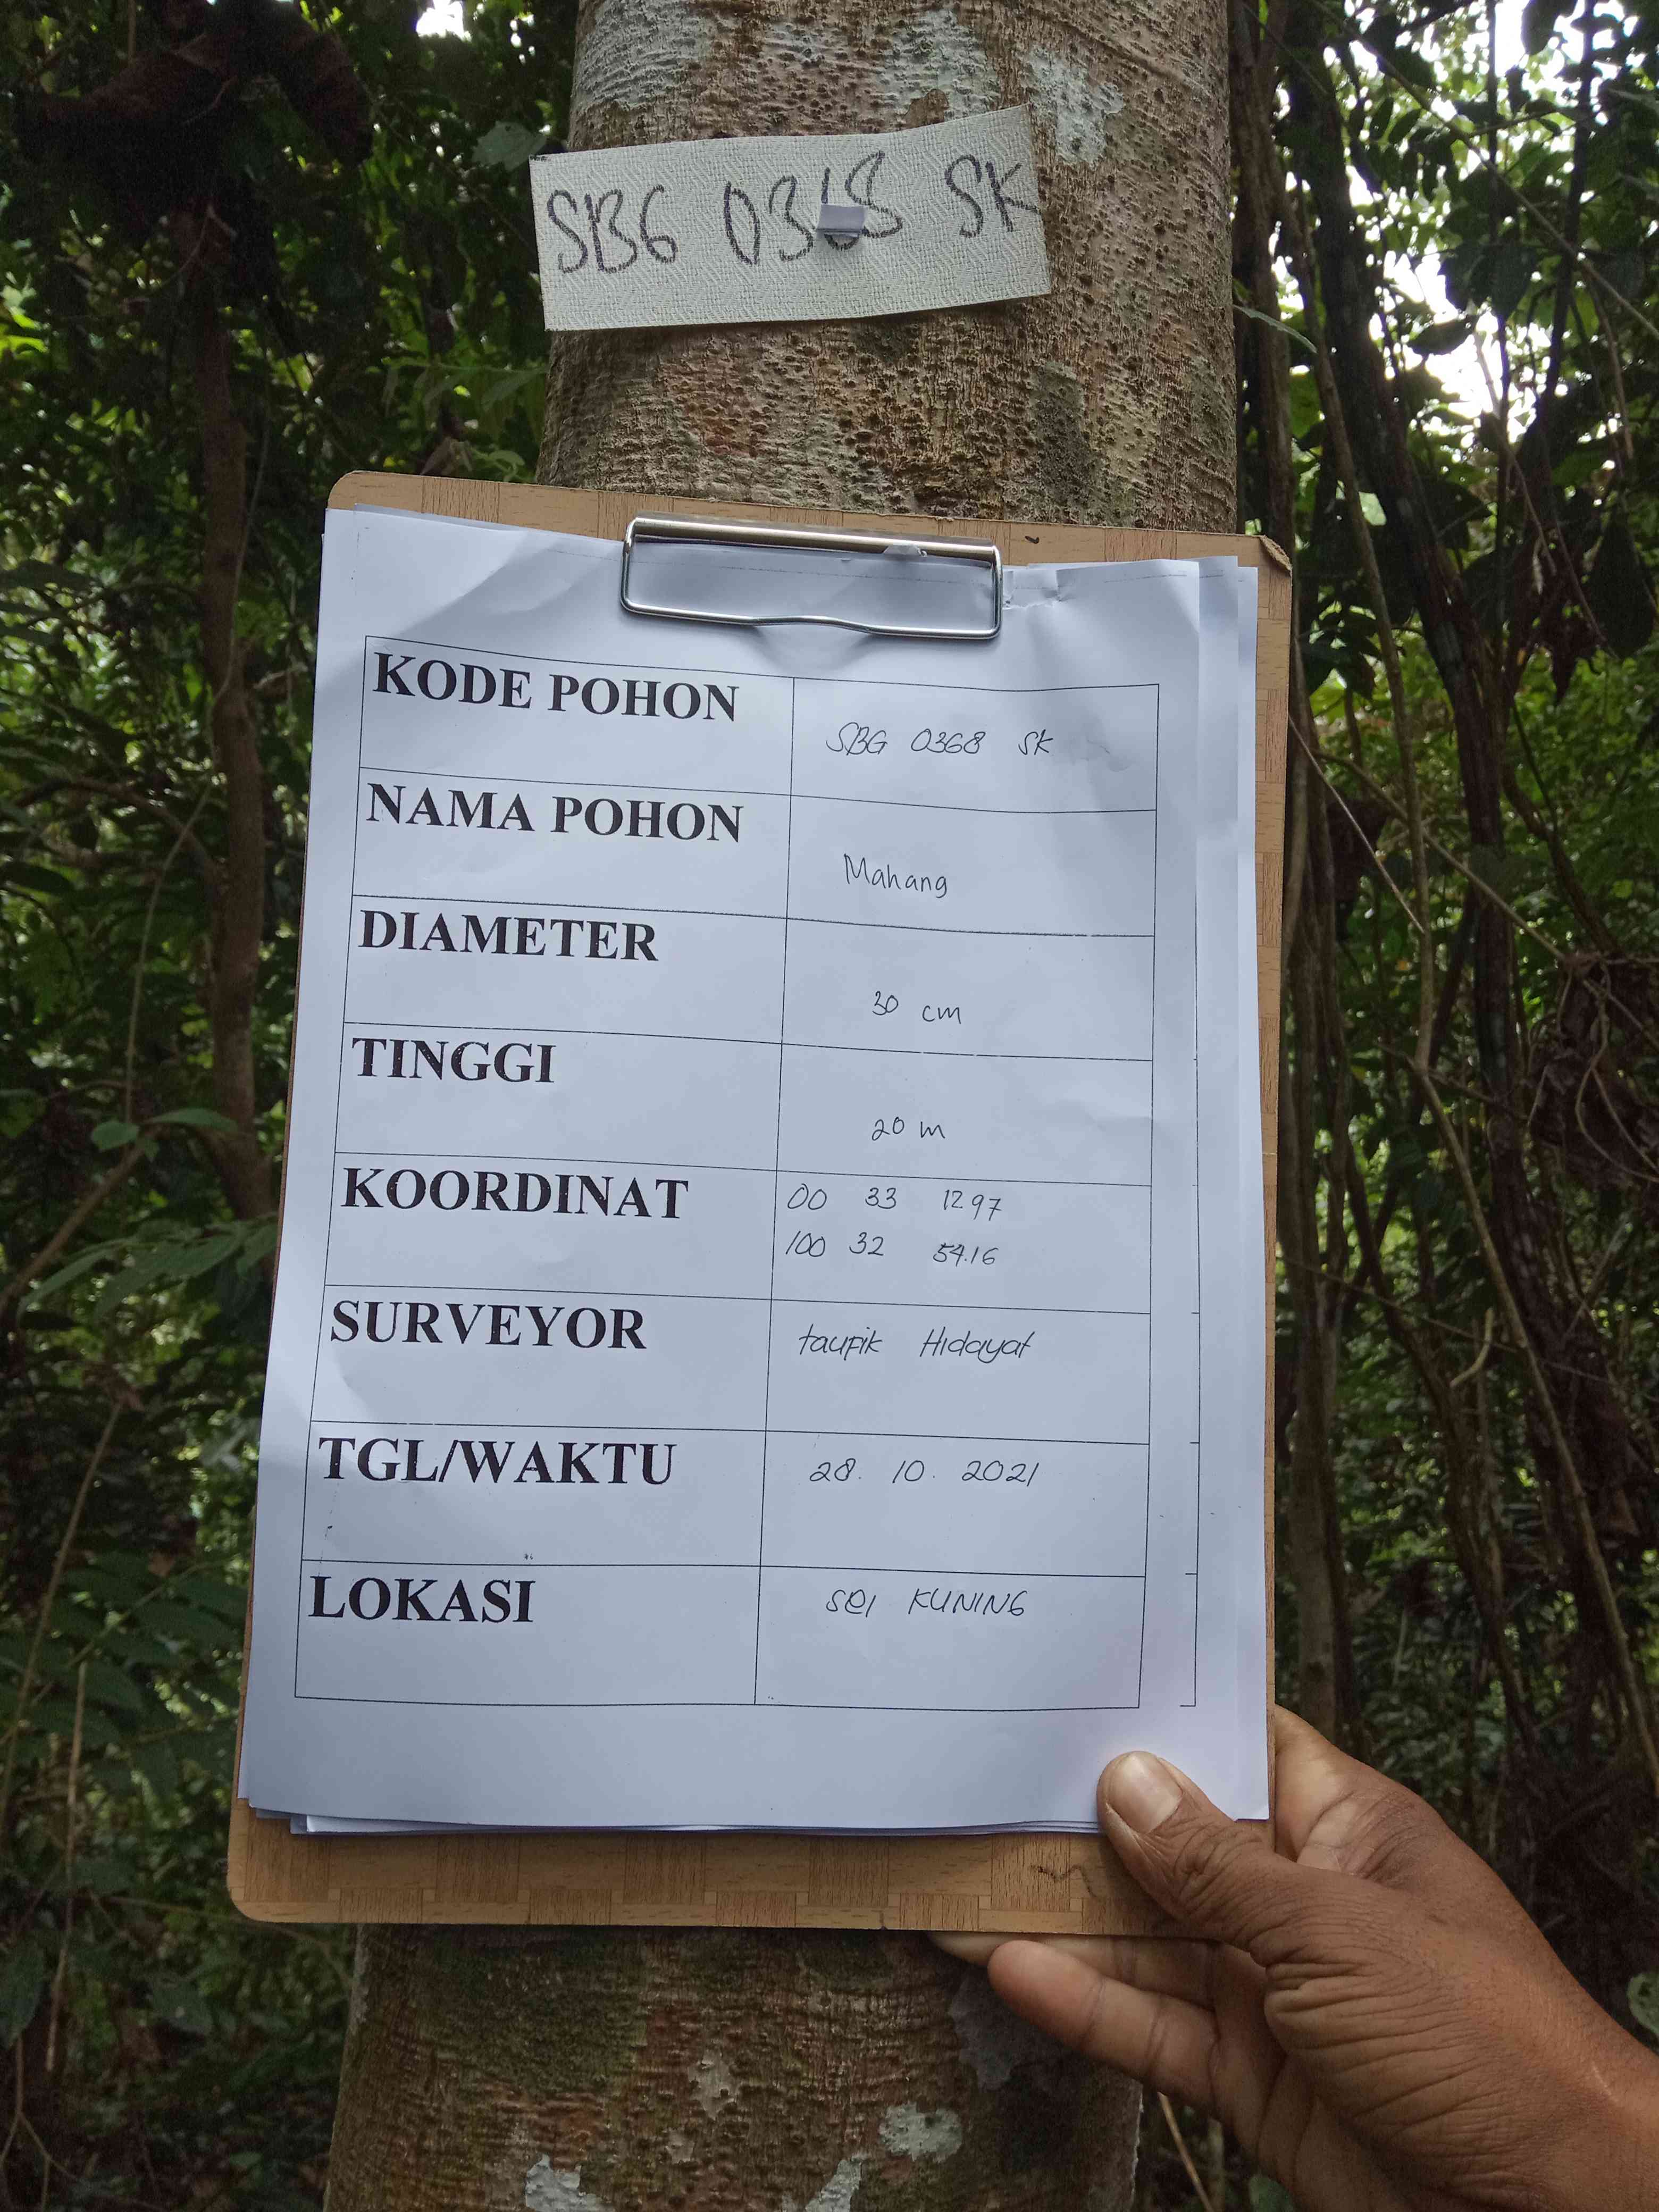 SBG 0368 SK
KODE POHON
SBG 0368 SK
NAMA POHON
Mahang
DIAMETER
30 cm
TINGGI
20 m
KOORDINAT
00 33 12.97
100 32 54.16
SURVEYOR
taupik Hidayat
TGL/WAKTU
28. 10. 2021
LOKASI
SEI KUNING